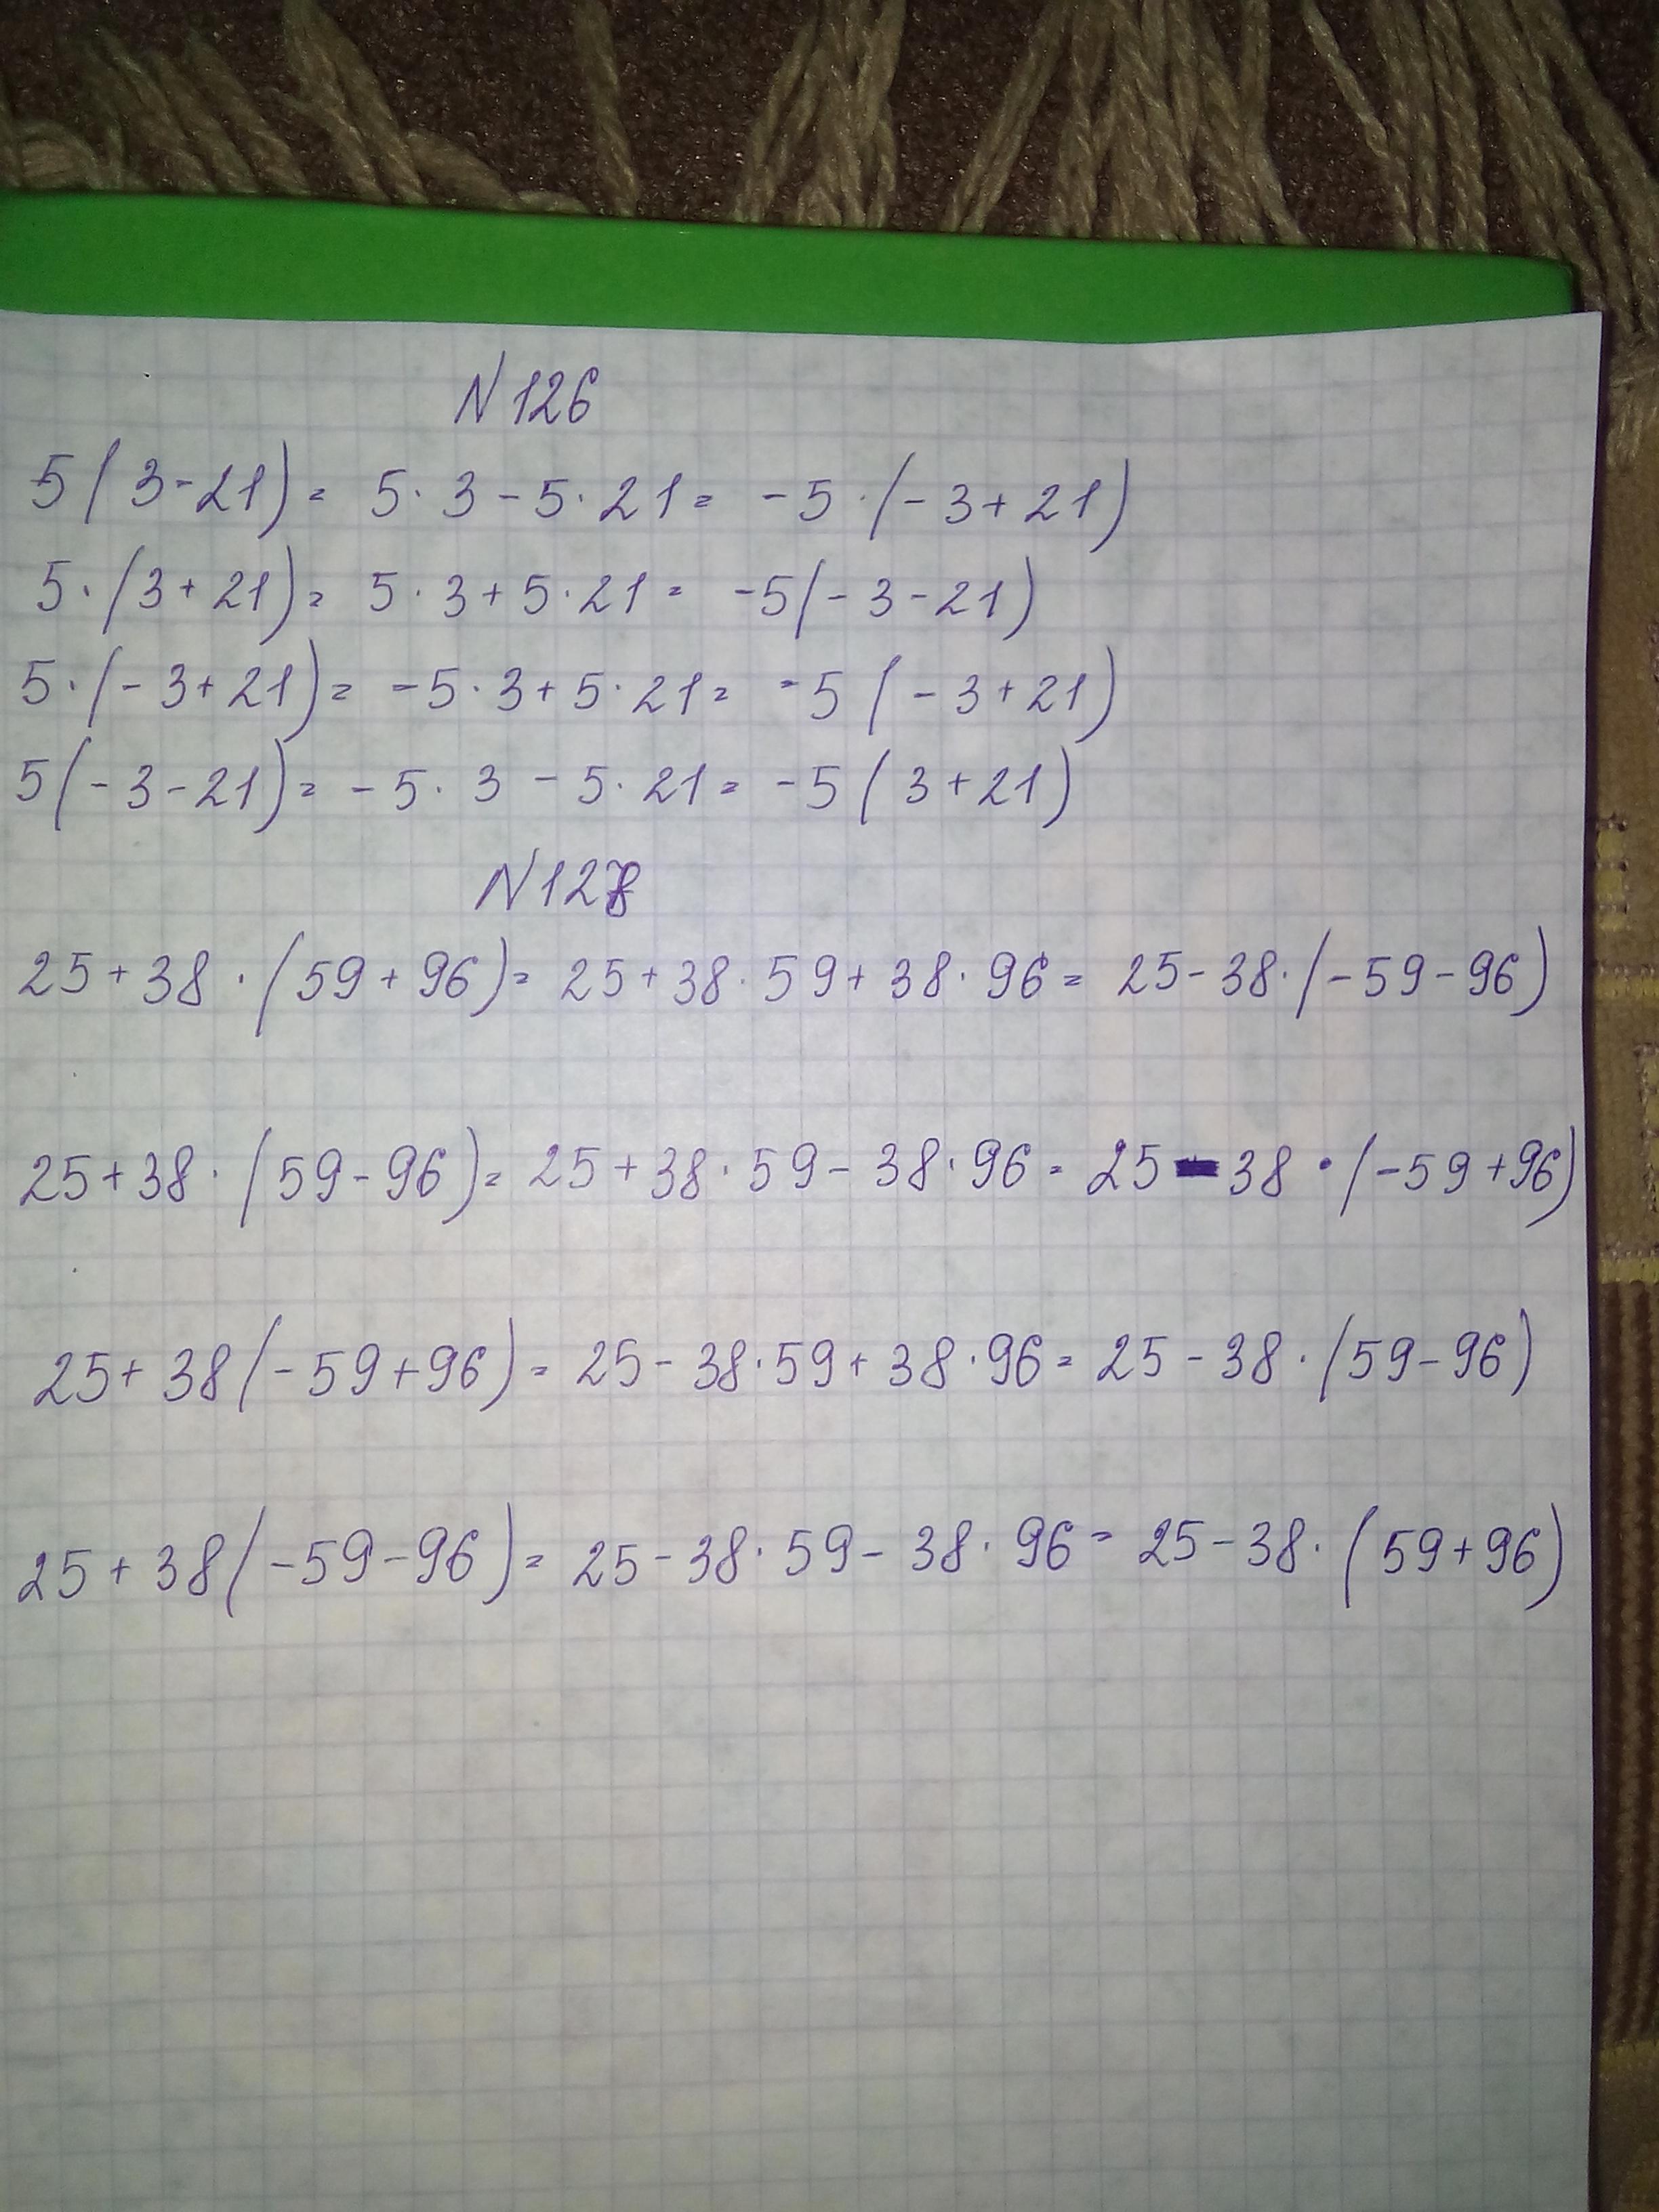 N 126
5(3-21)= 5·3-5·21= -5·(-3+21)
5·(3+21)= 5·3+5·21= -5(-3-21)
5·(-3+21)= -5·3+5·21= -5(-3+21)
5(-3-21)= -5·3-5·21= -5(3+21)
N 128
25+38·(59+96)= 25+38·59+38·96= 25-38·(-59-96)
25+38·(59-96)= 25+38·59-38·96= 25-38·(-59+96)
25+38(-59+96)= 25-38·59+38·96= 25-38·(59-96)
25+38(-59-96)= 25-38·59-38·96= 25-38·(59+96)